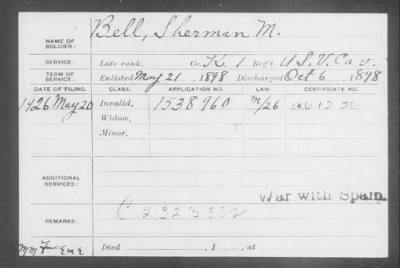 NAME OF SOLDIER: Bell, Sherman M.
SERVICE: Late rank, Co. K, 1 Reg't U.S.V. Cav.
TERM OF SERVICE: Enlisted May 21, 1898 Discharged Oct 6, 1898
DATE OF FILING. CLASS. APPLICATION NO. LAW. CERTIFICATE NO.
1926 May 20 Invalid, 1538960 m/26 A 6 12 26
Widow,
Minor,
ADDITIONAL SERVICES:
War with Spain.
C 2323332
REMARKS:
Died , 1 , at